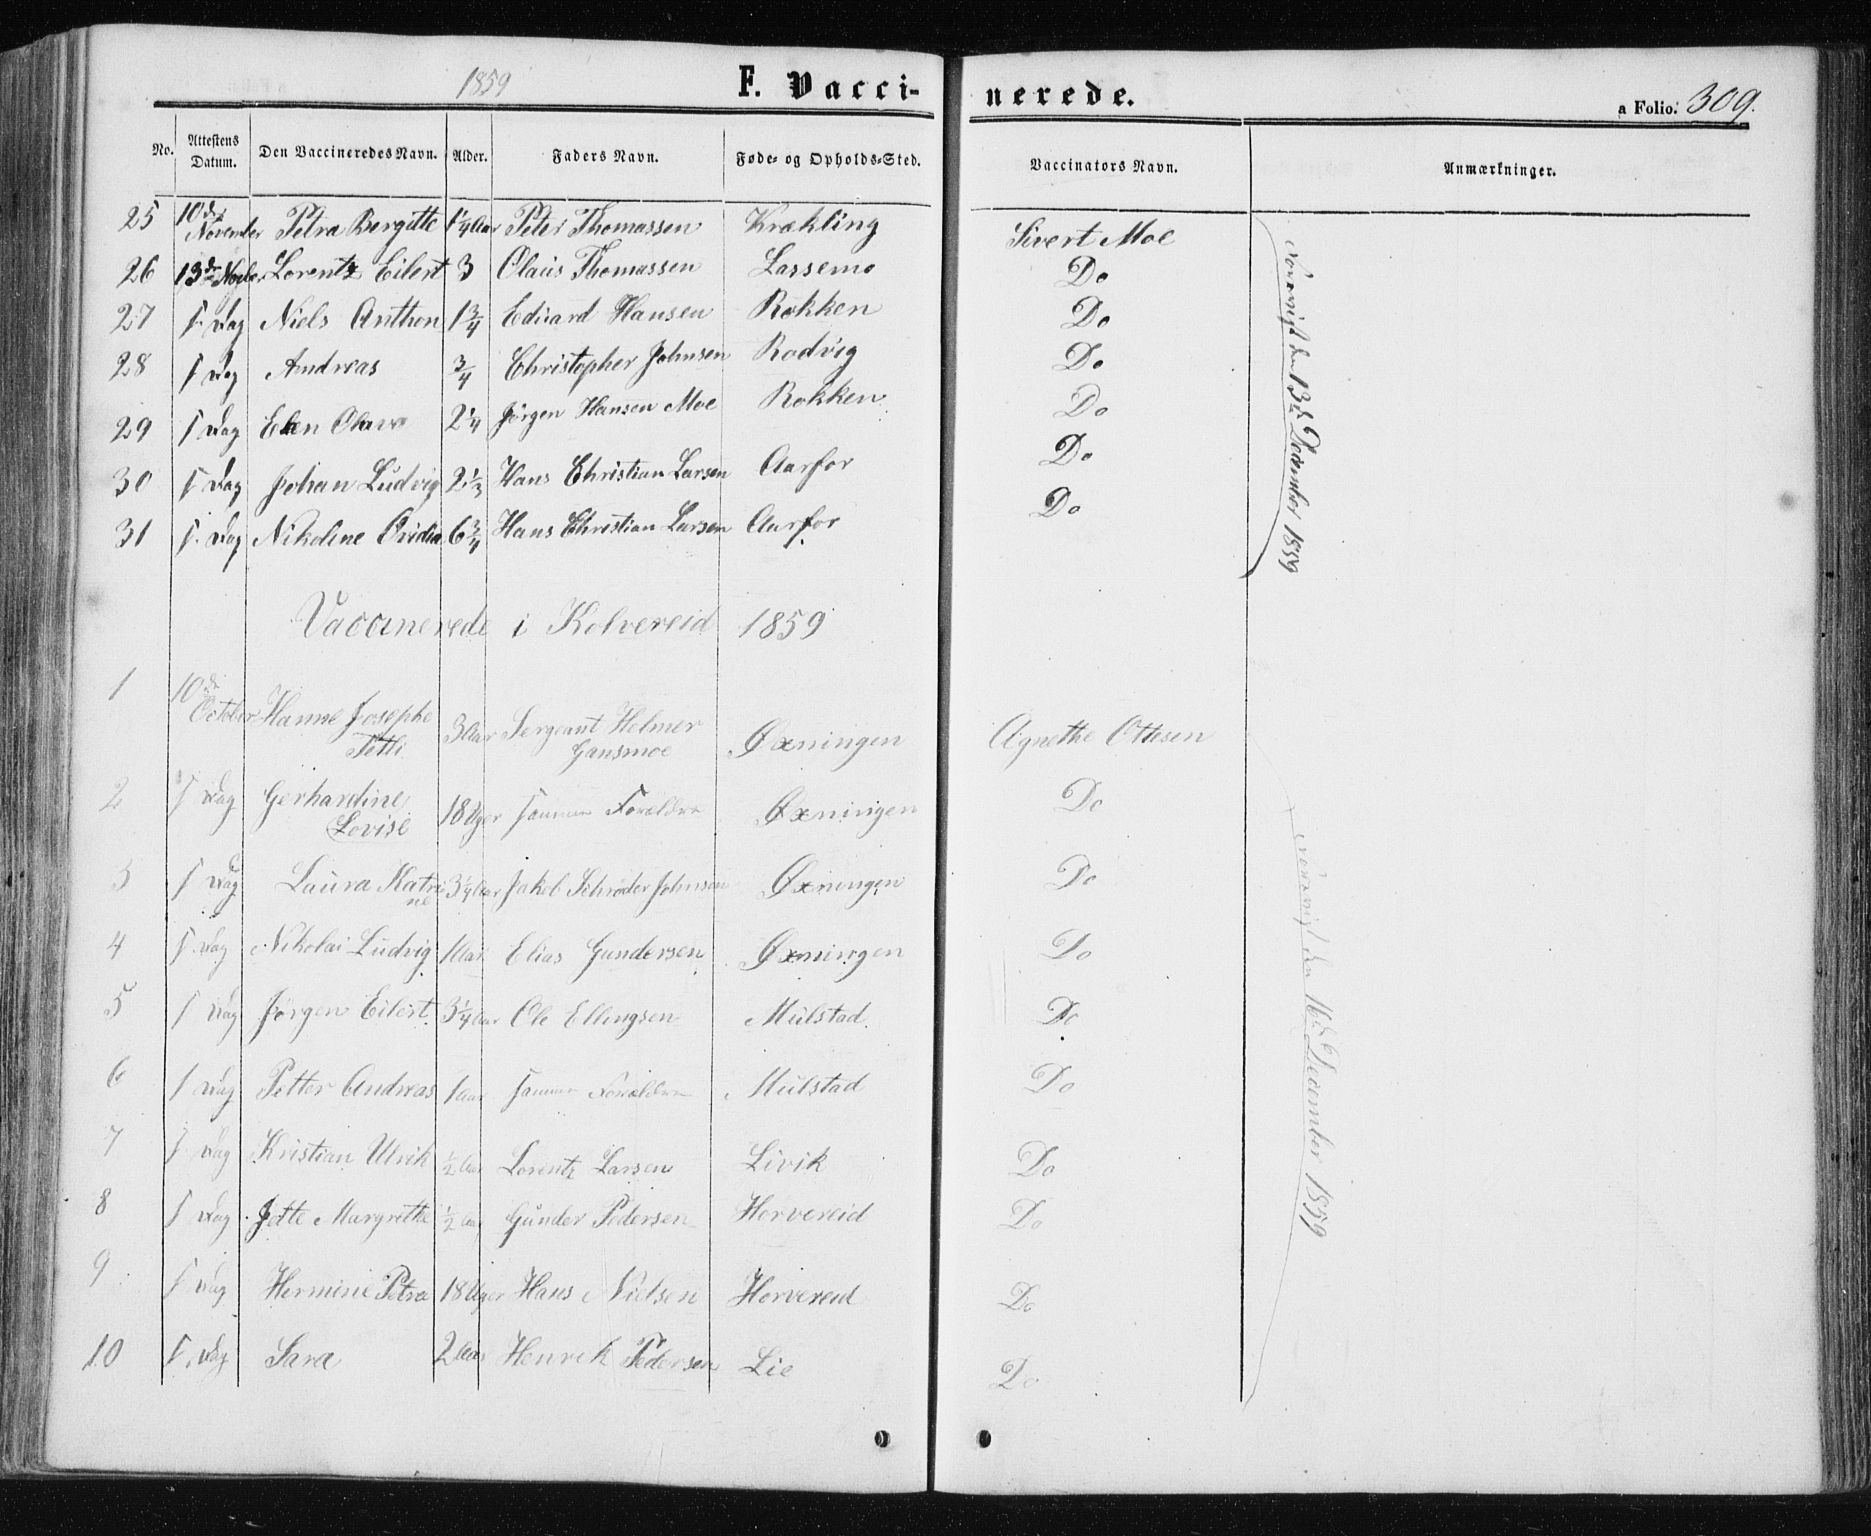 1859
F. Vacci-
nerede.
a Folio. 309.
No.
Attestens Datum.
Den Vaccineredes Navn.
Alder.
Faders Navn.
Føde- og Opholds-Sted.
Vaccinators Navn.
Anmærkninger.
25 10de November Petra Bergitte 1 1/4 Aar Peter Thomassen Krækling Sivert Moe
26 13de Novbr Lorentz Eilert 3 Olaus Thomassen Lassemo Do
27 s. Dag Niels Anthon 1 3/4 Eduard Hansen Rokken Do
28 s. Dag Andreas 3/4 Christopher Johnsen Rodvig Do
29 s. Dag Elen Olava 2 1/4 Jørgen Hansen Moe Rokken Do
30 s. Dag Johan Ludvig 2 1/3 Hans Christian Larsen Aarfor Do
31 s. Dag Nikoline Ovidia 6 3/4 Hans Christian Larsen Aarfor Do
den 13de December 1859
Vaccinerede i Kolvereid 1859
1 10de October Hanne Josephe 3 Aar Sergeant Helmer Gansmoe Øxningen Agnethe Ottesen
2 s. Dag Gerhardine Lovise 18 Uger samme Forældre Øxningen Do
3 s. Dag Laura Katrine 3 1/4 Aar Jakob Schrøder Johnsen Øxningen Do
4 s. Dag Nikolai Ludvig 1 Aar Elias Gundersen Øxningen Do
5 s. Dag Jørgen Eilert 3 1/4 Aar Ole Ellingsen Mulstad Do
6 s. Dag Petter Andreas 1 Aar samme Forældre Mulstad Do
7 s. Dag Kristian Ulrik 1/2 Aar Lorentz Larsen Livik Do
8 s. Dag Jette Margrethe 1/2 Aar Gunder Pedersen Horvereid Do
9 s. Dag Hermine Petra 18 Uger Hans Nielsen Horvereid Do
10 s. Dag Sara 2 Aar Henrik Pedersen Lie Do
den 16de December 1859